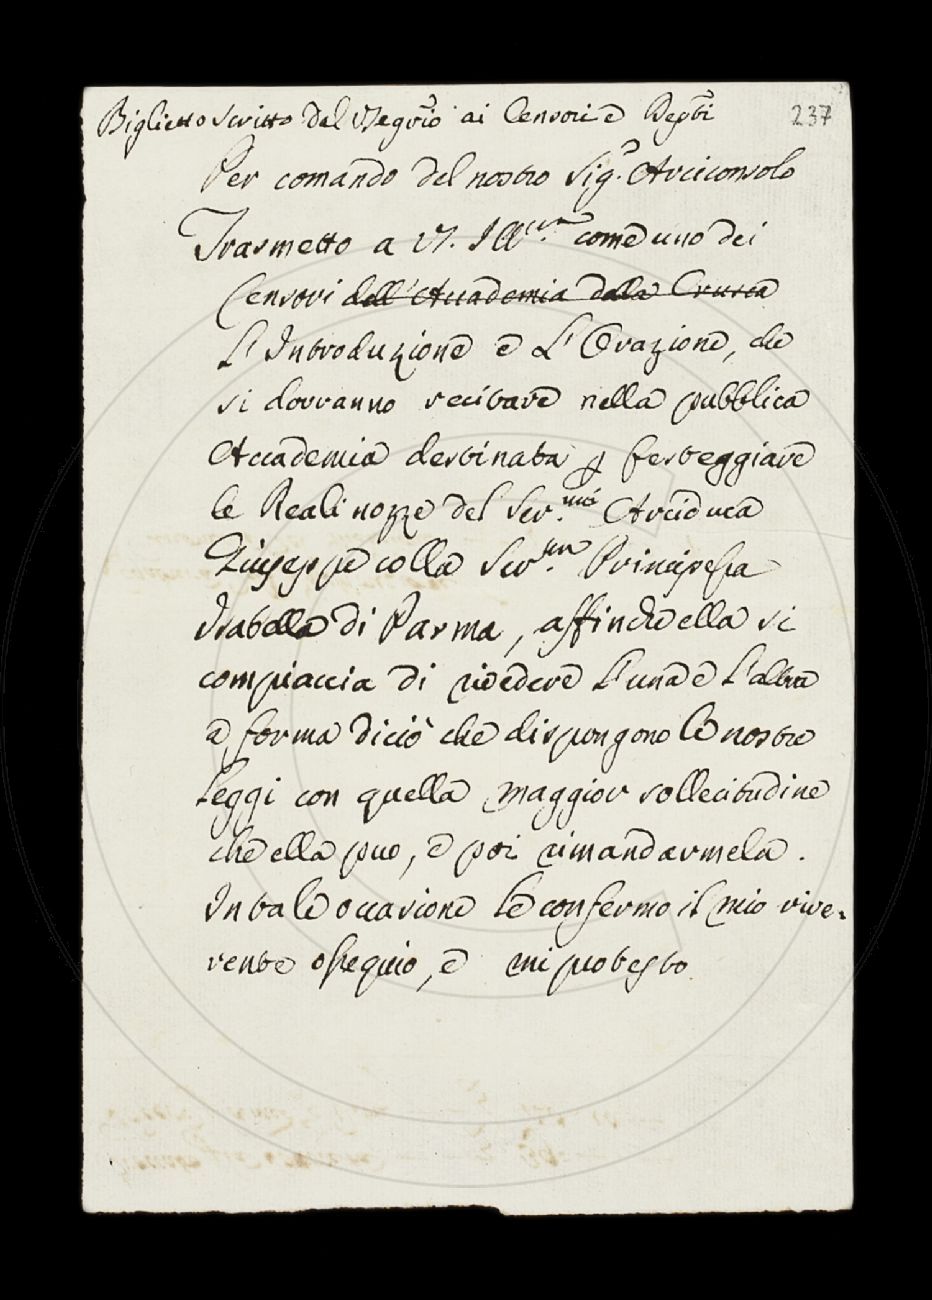 Biglietto scritto dal Segrio ai Censori e Depti
237
Per comando del nostro Sig.e Arciconsolo
Trasmetto a V. Ill.ma come uno dei
Censori dell'Accademia dalla Crusca
L'Introduzione e L'Orazione, che
si dovranno recitare nella pubblica
Accademia destinata p festeggiare
le Reali nozze del Ser.mi Arciduca
Giuseppe colla Ser.ma Principessa
Isabella di Parma, affinche ella si
compiaccia di rivedere l'una e l'altra
a forma di ciò che dispongono le nostre
leggi con quella maggior sollecitudine
che ella puo, e poi rimandarmela.
In tale occasione le confermo il mio rive-
rente ossequio, e mi protesto